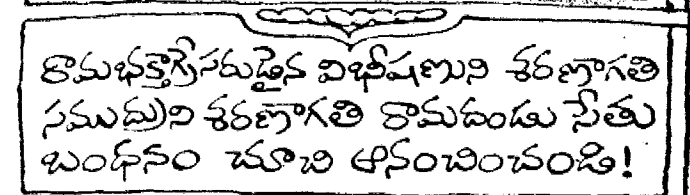 రామభక్తాగ్రేసరుడైన విభీషణుని శరణాగతి
సముద్రుని శరణాగతి రామదండు సేతు
బంధనం చూచి ఆనంచించండి!